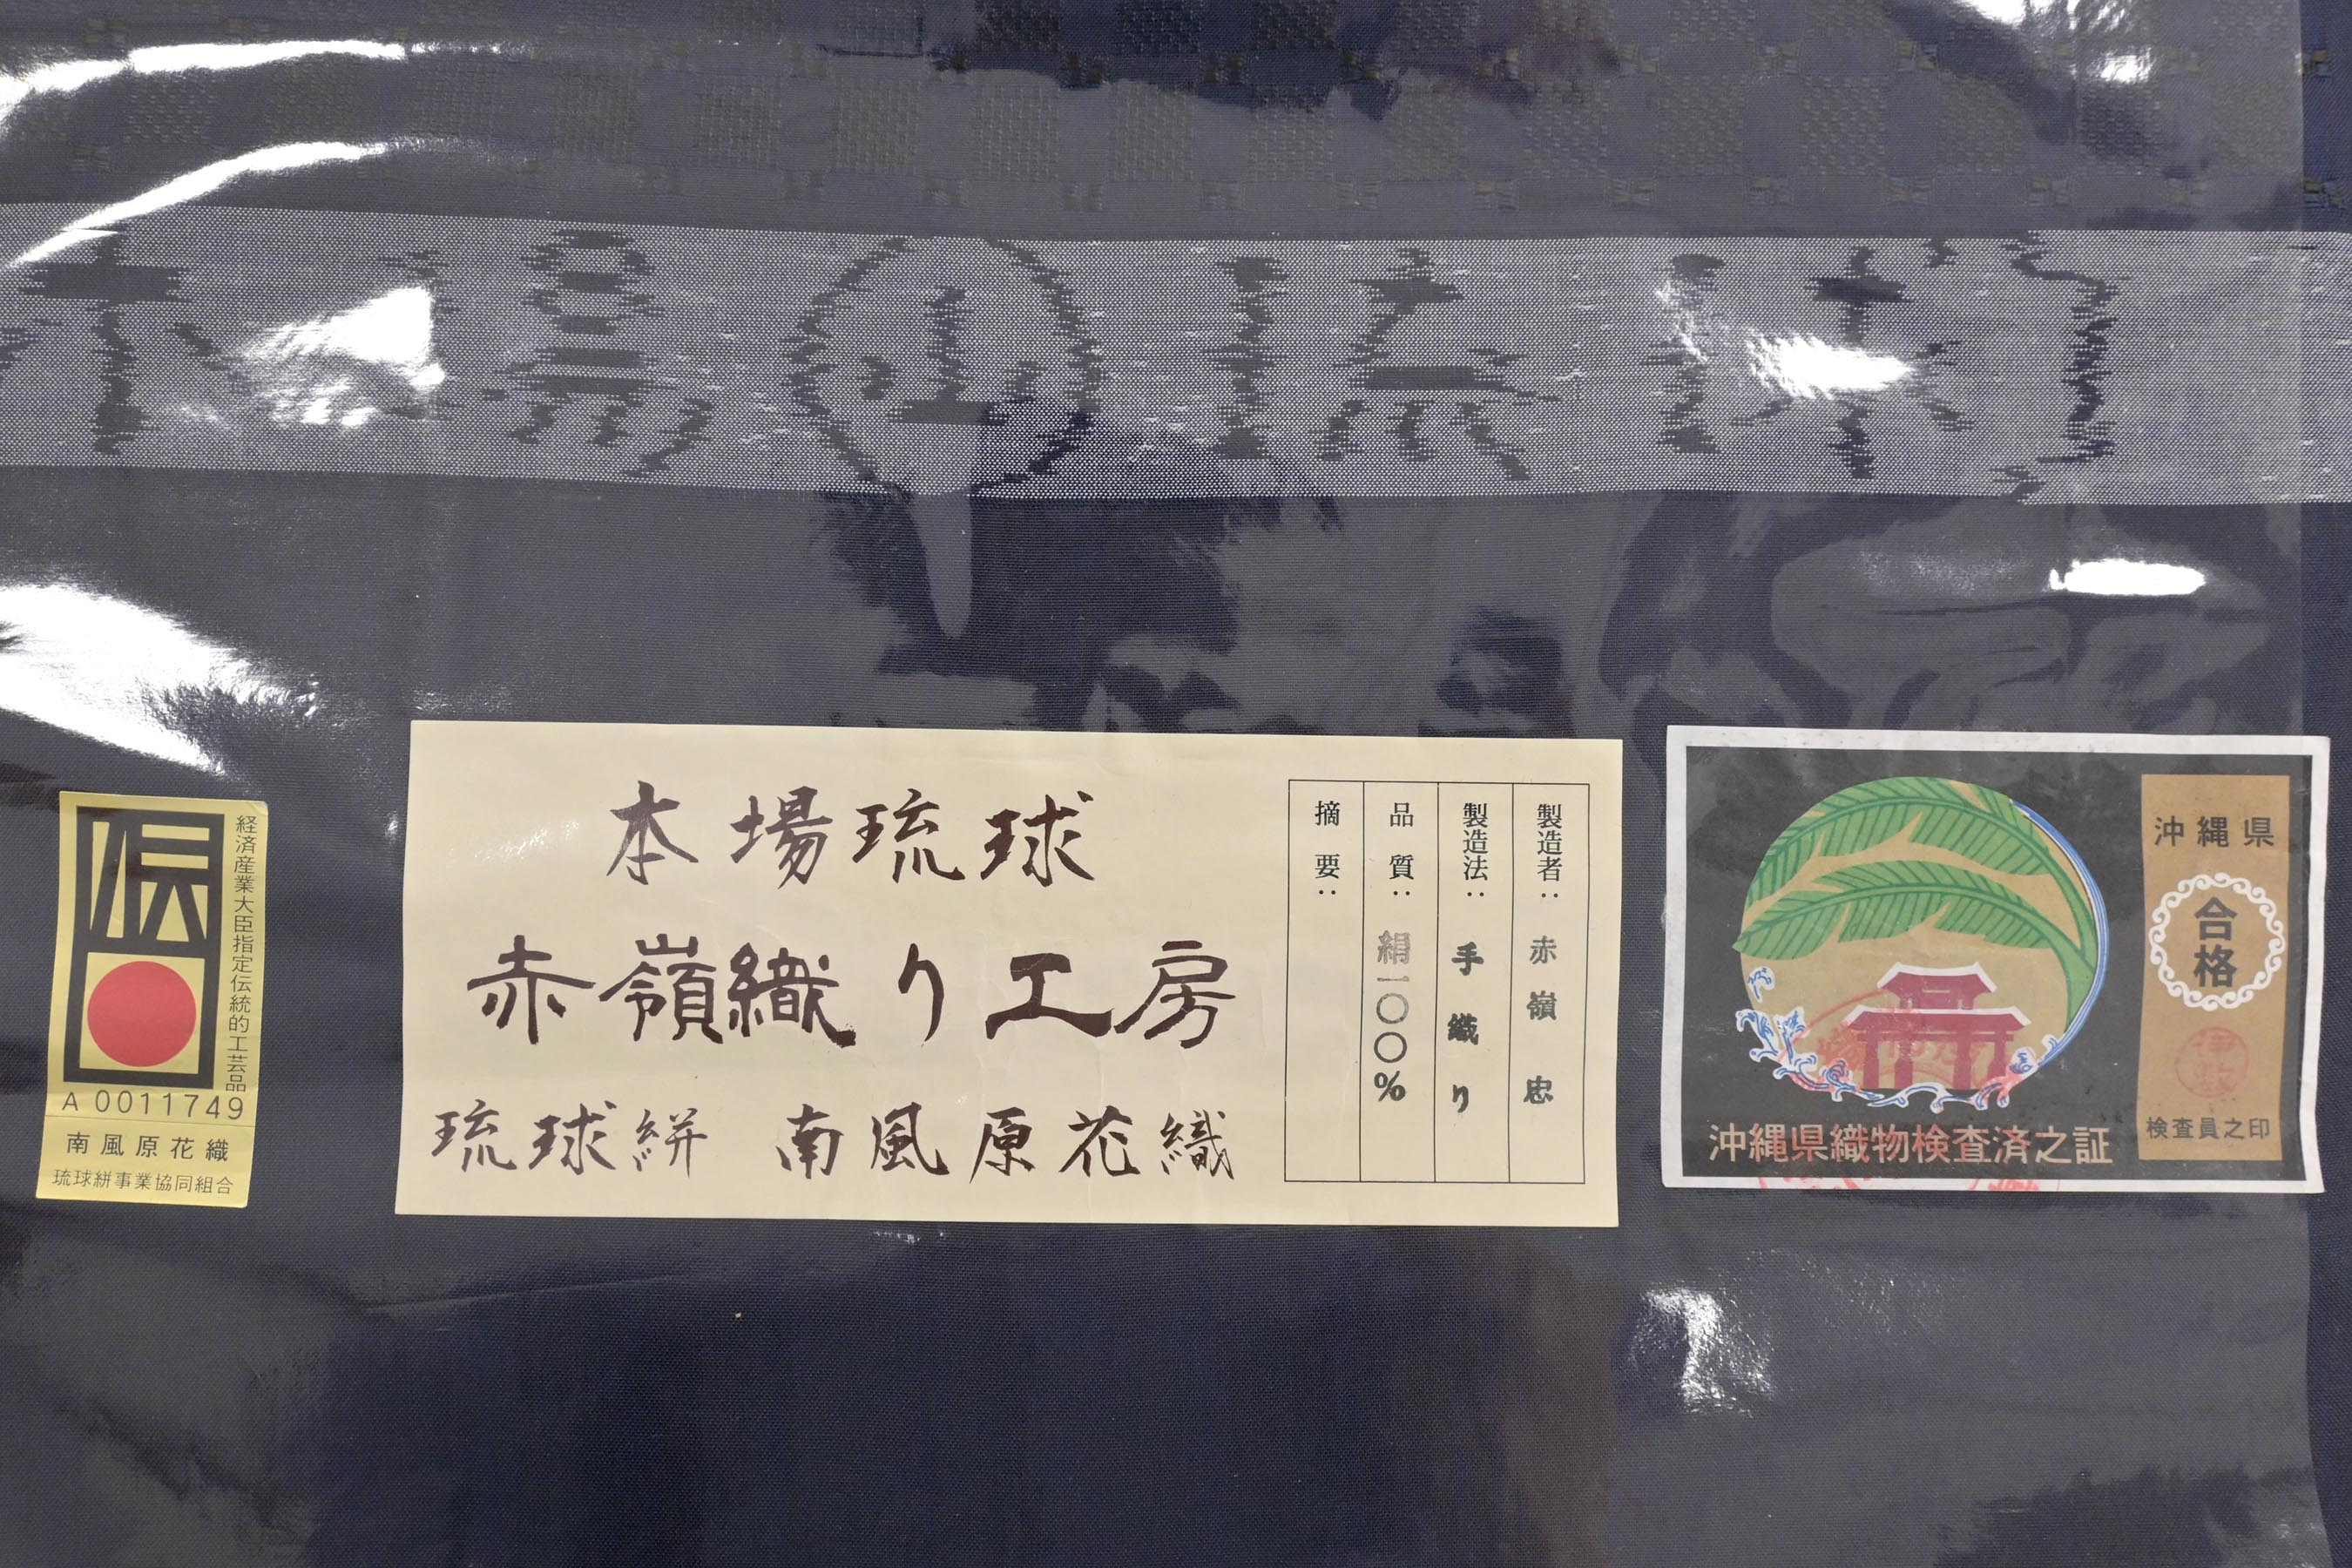 本場 琉球
伝
経済産業大臣指定伝統的工芸品
A 0011749
南風原花織
琉球絣事業協同組合
本場琉球
赤嶺織り工房
琉球絣 南風原花織
製造者: 赤嶺 忠
製造法: 手織り
品質: 絹一〇〇%
摘要:
沖縄県織物検査済之証
沖縄県
合格
検査員之印